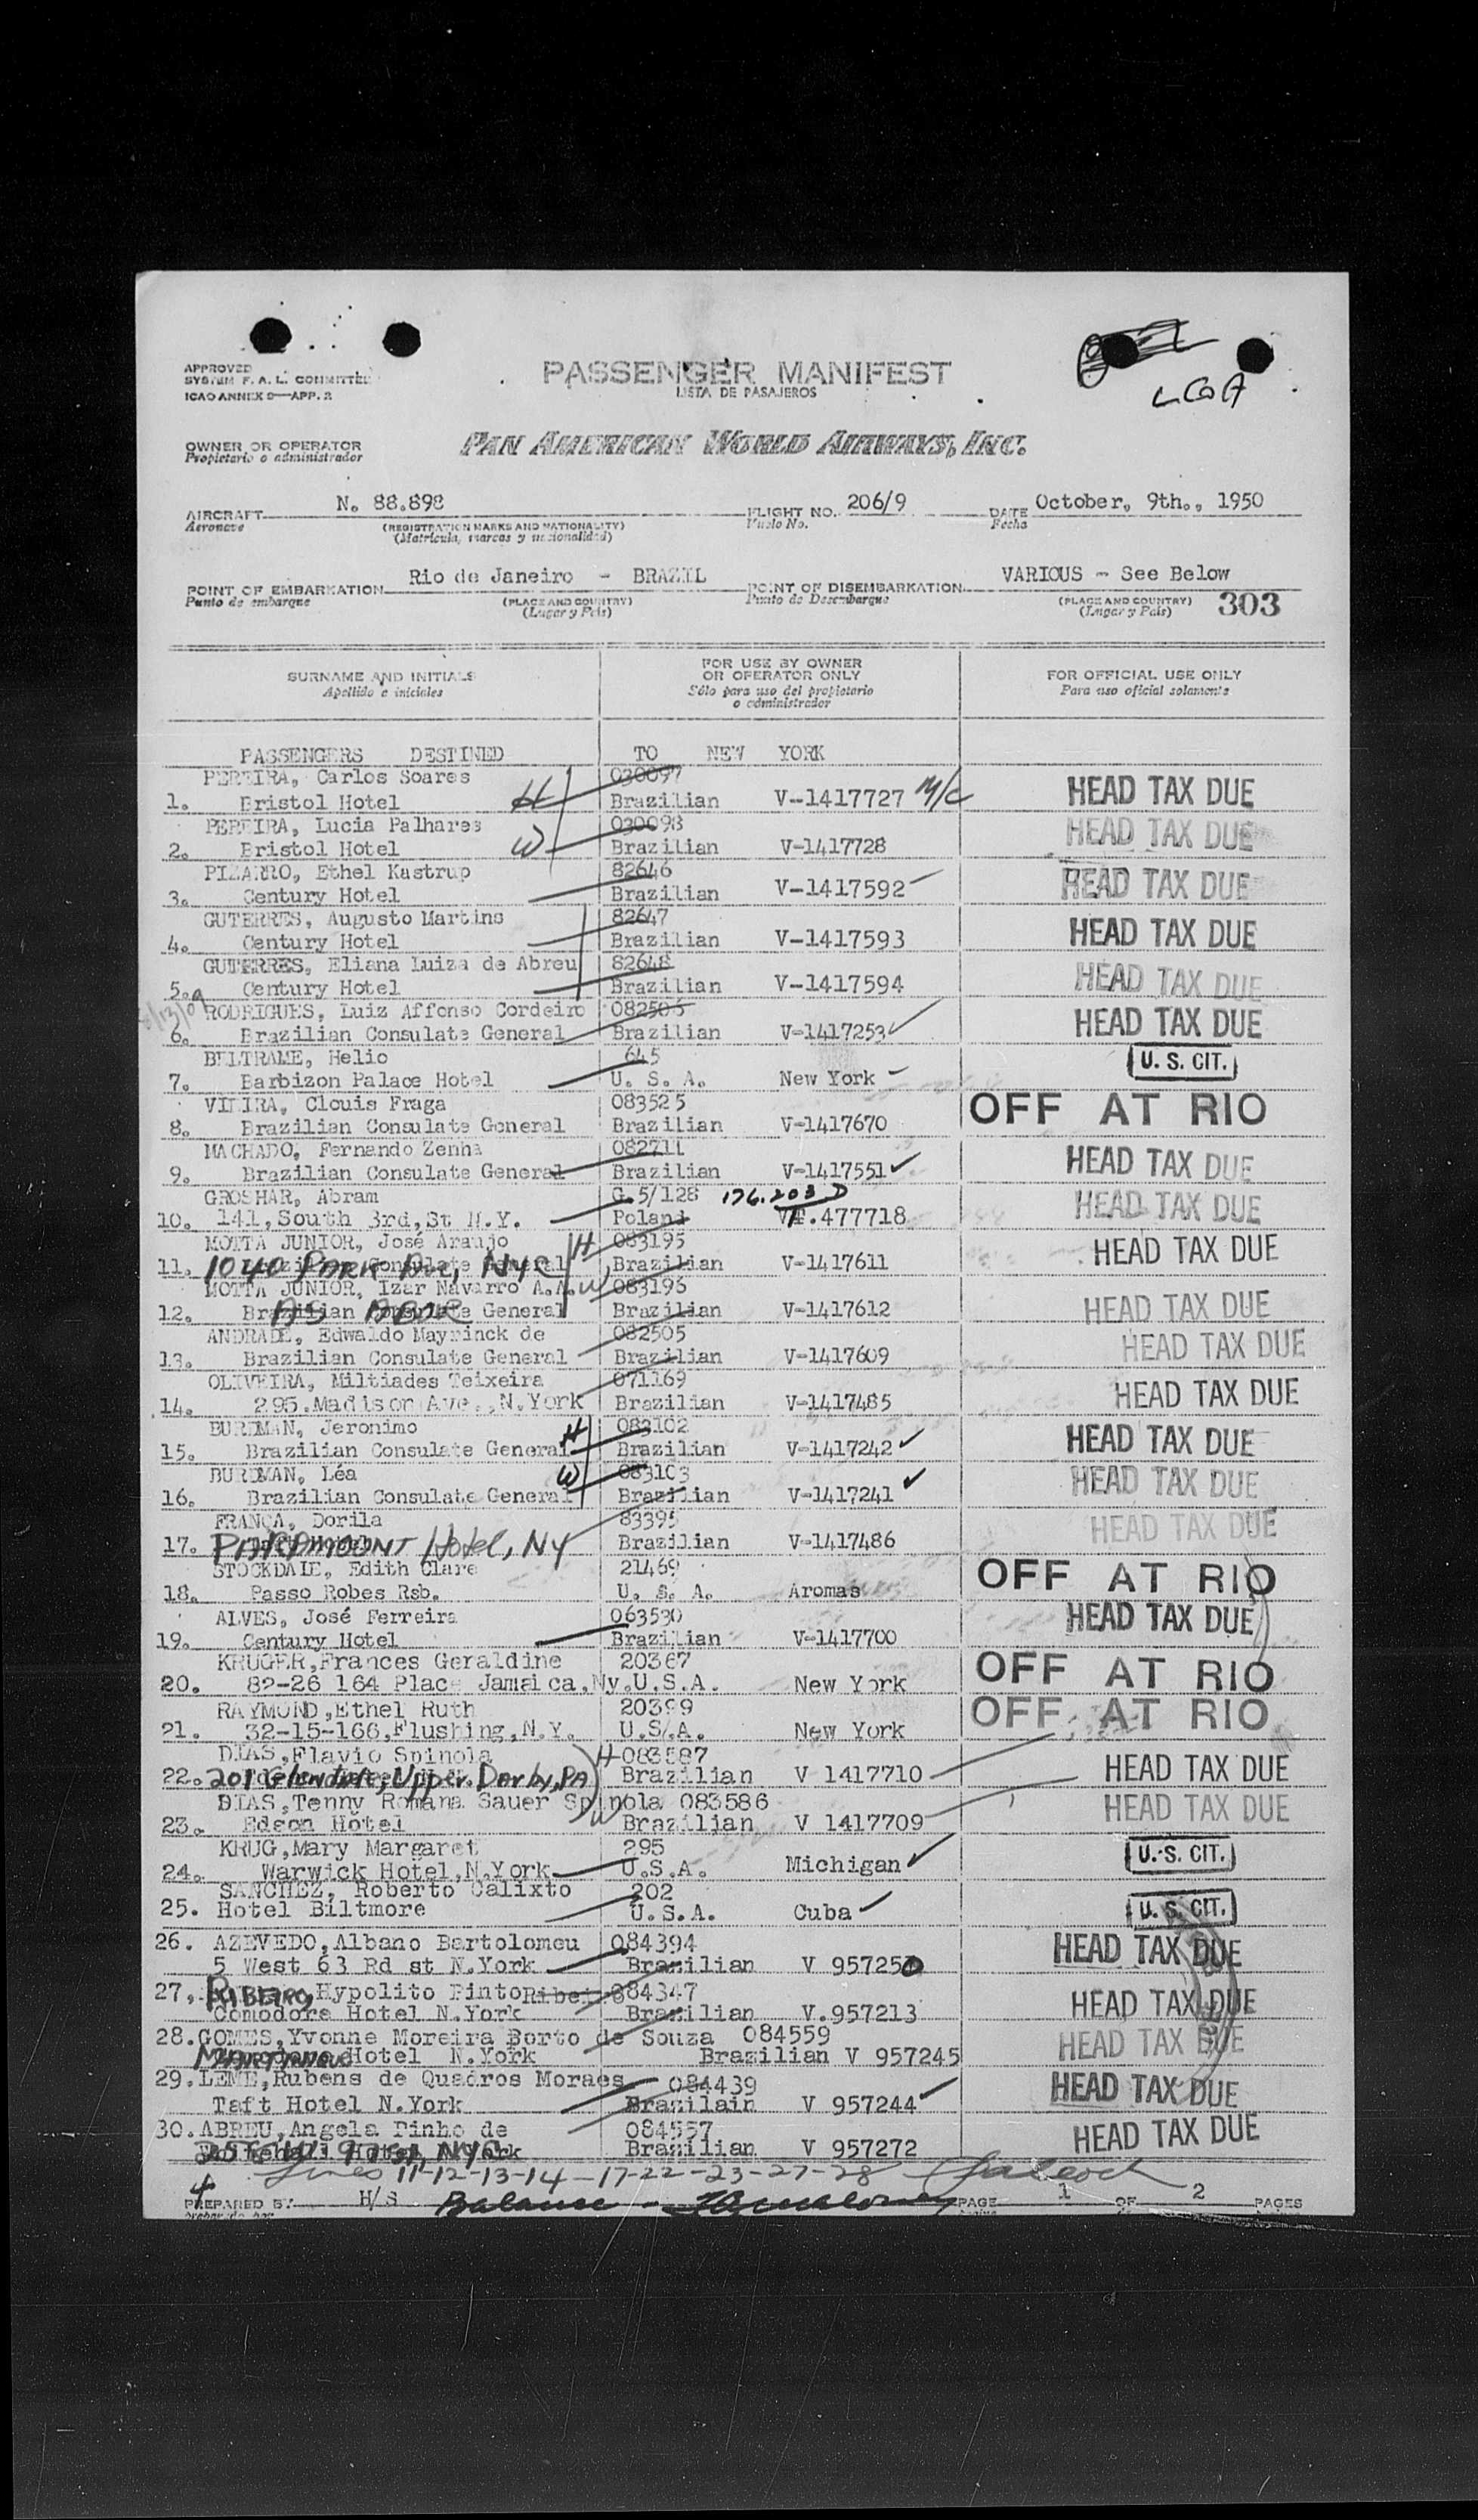 APPROVED
SYSTEM F. A. L. COMMITTEE
ICAO ANNEX 9—APP. 2
PASSENGER MANIFEST
LISTA DE PASAJEROS
LGA
OWNER OR OPERATOR
Propietario o administrador
PAN AMERICAN WORLD AIRWAYS, INC.
AIRCRAFT N. 88.898 FLIGHT NO. 206/9 DATE October, 9th., 1950
Aeronave (REGISTRATION MARKS AND NATIONALITY) Vuelo No. Fecha
(Matrícula, marcas y nacionalidad)
POINT OF EMBARKATION Rio de Janeiro - BRAZIL POINT OF DISEMBARKATION VARIOUS - See Below
Punto de embarque (PLACE AND COUNTRY) Punto de Desembarque (PLACE AND COUNTRY) 303
(Lugar y País) (Lugar y País)
SURNAME AND INITIALS FOR USE BY OWNER OR OPERATOR ONLY FOR OFFICIAL USE ONLY
Apellido e iniciales Sólo para uso del propietario o administrador Para uso oficial solamente
PASSENGERS DESTINED TO NEW YORK
PEREIRA, Carlos Soares 030097
1. Bristol Hotel H Brazilian V-1417727 M/C HEAD TAX DUE
PEREIRA, Lucia Palhares 030098
2. Bristol Hotel W Brazilian V-1417728 HEAD TAX DUE
PIZARRO, Ethel Kastrup 82646
3. Century Hotel Brazilian V-1417592 HEAD TAX DUE
GUTERRES, Augusto Martins 82647
4. Century Hotel Brazilian V-1417593 HEAD TAX DUE
GUTERRES, Eliana Luiza de Abreu 82648
5. Century Hotel Brazilian V-1417594 HEAD TAX DUE
RODRIGUES, Luiz Affonso Cordeiro 082506
6. Brazilian Consulate General Brazilian V-1417253 HEAD TAX DUE
BELTRAME, Helio 645
7. Barbizon Palace Hotel U. S. A. New York U. S. CIT.
VIEIRA, Clouis Fraga 083525
8. Brazilian Consulate General Brazilian V-1417670 OFF AT RIO
MACHADO, Fernando Zenha 082711
9. Brazilian Consulate General Brazilian V-1417551 HEAD TAX DUE
GROSHAR, Abram G.5/128 176.203 D
10. 141, South 3rd, St N.Y. Poland .477718 HEAD TAX DUE
MOTTA JUNIOR, José Araujo H 083195
11. 1040 PARK Ave, NYC Brazilian V-1417611 HEAD TAX DUE
MOTTA JUNIOR, Izar Navarro A.A. W 083196
12. Brazilian Consulate General AS ABOVE Brazilian V-1417612 HEAD TAX DUE
ANDRADE, Edwaldo Mayrinck de 082505
13. Brazilian Consulate General Brazilian V-1417609 HEAD TAX DUE
OLIVEIRA, Miltiades Teixeira 071169
14. 295.Madison Ave., N.York Brazilian V-1417485 HEAD TAX DUE
BURDMAN, Jeronimo H 083102
15. Brazilian Consulate General Brazilian V-1417242 HEAD TAX DUE
BURDMAN, Léa W 083103
16. Brazilian Consulate General Brazilian V-1417241 HEAD TAX DUE
FRANÇA, Dorila 83395
17. PARAMOUNT Hotel, NY Brazilian V-1417486 HEAD TAX DUE
STOCKDALE, Edith Clare 21469
18. Passo Robes Rsb. U. S. A. Aromas OFF AT RIO
ALVES, José Ferreira 063530
19. Century Hotel Brazilian V-1417700 HEAD TAX DUE
KRUGER,Frances Geraldine 20367
20. 82-26 164 Place Jamaica,Ny.U.S.A. New York OFF AT RIO
RAYMOND,Ethel Ruth 20399
21. 32-15-166,Flushing,N.Y. U.S.A. New York OFF AT RIO
DIAS,Flavio Spinola H 083587
22. 201 Glendale, Upper Darby, PA Brazilian V 1417710 HEAD TAX DUE
DIAS,Tenny Romana Sauer Spinola 083586
23. Edson Hotel W Brazilian V 1417709 HEAD TAX DUE
KRUG,Mary Margaret 295
24. Warwick Hotel,N.York U.S.A. Michigan U. S. CIT.
SANCHEZ, Roberto Calixto 202
25. Hotel Biltmore U.S.A. Cuba U. S. CIT.
26. AZEVEDO,Albano Bartolomeu 084394
5 West 63 Rd st N.York Brazilian V 957250 HEAD TAX DUE
27. RIBEIRO, Hypolito Pinto Ribei 084347
Comodore Hotel N.York Brazilian V.957213 HEAD TAX DUE
28.GOMES,Yvonne Moreira Borto de Souza 084559
Hotel N.York Brazilian V 957245 HEAD TAX DUE
29.LEME,Rubens de Quadros Moraes 084439
Taft Hotel N.York Brazilain V 957244 HEAD TAX DUE
30.ABREU,Angela Pinho de 084557
NYC Brazilian V 957272 HEAD TAX DUE
Lines 11-12-13-14-17-22-23-27-28
PREPARED BY H/S Balance - PAGE 1 OF 2 PAGES